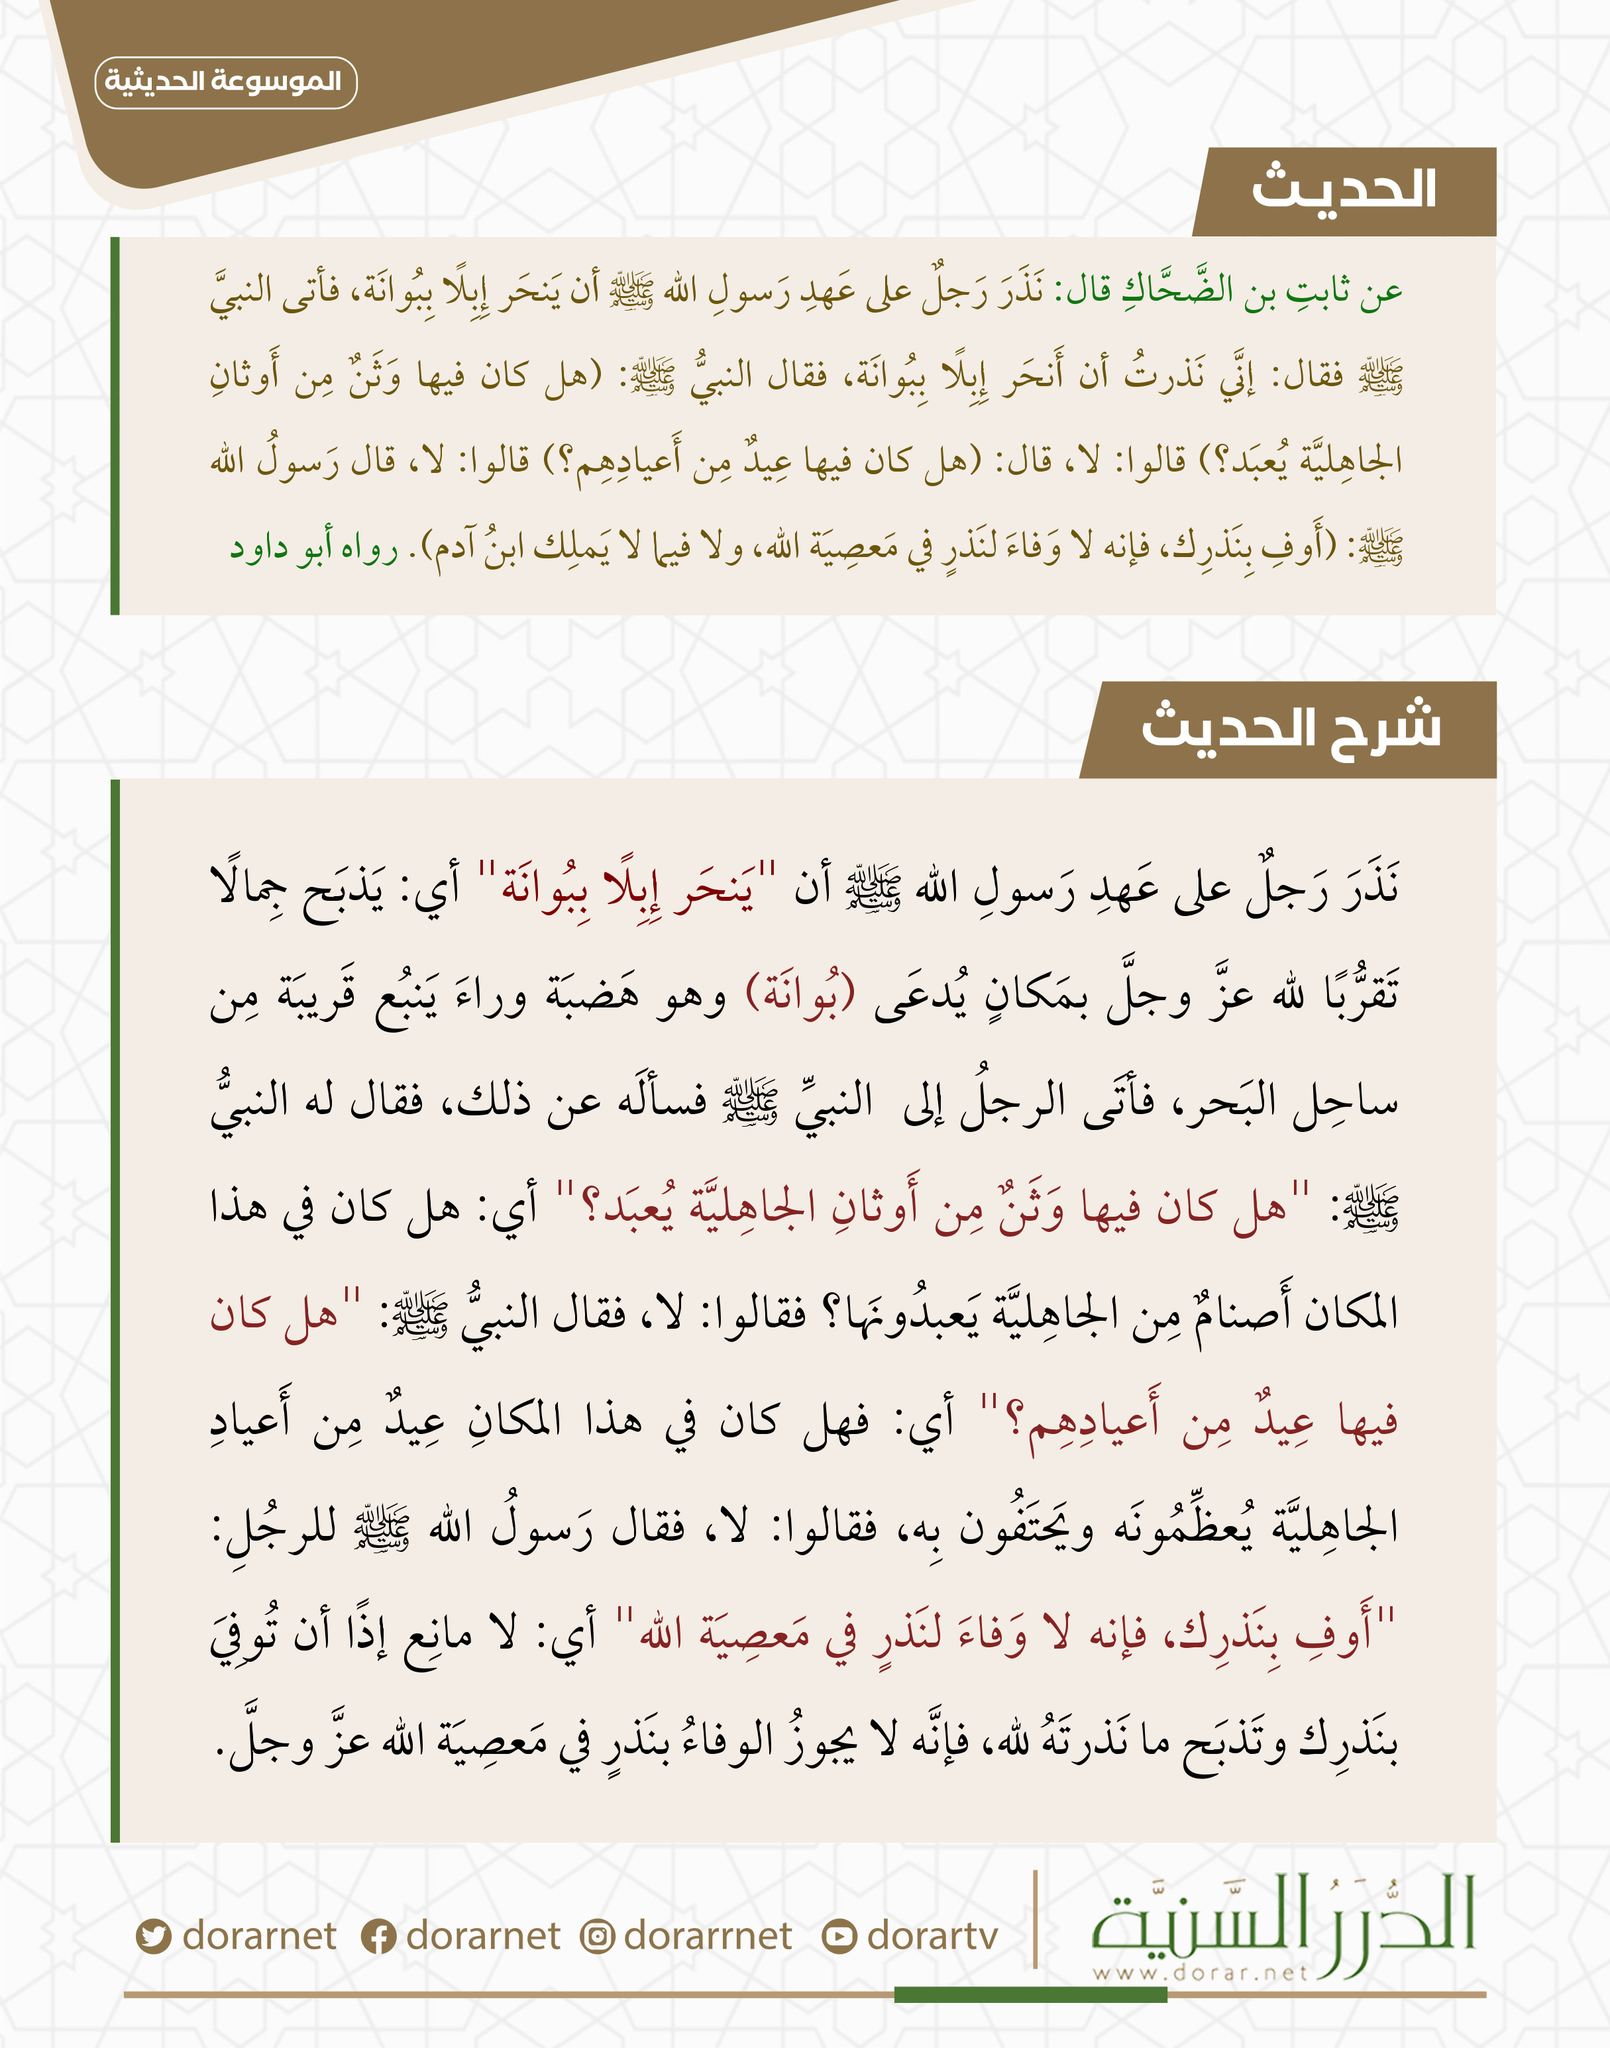 الموسوعة الحديثية
الحديث
عن ثابتِ بن الضَّحَّاكِ قال: نَذَرَ رَجلٌ على عَهدِ رَسولِ الله ﷺ أن يَنحَر إِبِلًا بِبُوانَة، فأتى النبيَّ
ﷺ فقال: إنَّي نَذرتُ أن أَنحَر إِبِلًا بِبُوانَة، فقال النبيُّ ﷺ: (هل كان فيها وَثَنٌ مِن أَوثانِ
الجاهِليَّة يُعبَد؟) قالوا: لا، قال: (هل كان فيها عِيدٌ مِن أَعيادِهِم؟) قالوا: لا، قال رَسولُ الله
ﷺ: (أَوفِ بِنَذرِك، فإنه لا وَفاءَ لنَذرٍ في مَعصِيَة الله، ولا فيما لا يَملِك ابنُ آدم). رواه أبو داود
شرح الحديث
نَذَرَ رَجلٌ على عَهدِ رَسولِ الله ﷺ أن "يَنحَر إِبِلًا بِبُوانَة" أي: يَذبَح جِمالًا
تَقرُّبًا لله عزَّ وجلَّ بمَكانٍ يُدعَى (بُوانَة) وهو هَضبَة وراءَ يَنبُع قَريبَة مِن
ساحِل البَحر، فأتَى الرجلُ إلى النبيِّ ﷺ فسألَه عن ذلك، فقال له النبيُّ
ﷺ: "هل كان فيها وَثَنٌ مِن أَوثانِ الجاهِليَّة يُعبَد؟" أي: هل كان في هذا
المكان أَصنامٌ مِن الجاهِليَّة يَعبدُونَها؟ فقالوا: لا، فقال النبيُّ ﷺ: "هل كان
فيها عِيدٌ مِن أَعيادِهِم؟" أي: فهل كان في هذا المكانِ عِيدٌ مِن أَعيادِ
الجاهِليَّة يُعظِّمُونَه ويَحتَفُون بِه، فقالوا: لا، فقال رَسولُ الله ﷺ للرجُلِ:
"أَوفِ بِنَذرِك، فإنه لا وَفاءَ لنَذرٍ في مَعصِيَة الله" أي: لا مانِع إذًا أن تُوفِيَ
بنَذرِك وتَذبَح ما نَذرتَهُ لله، فإنَّه لا يجوزُ الوفاءُ بنَذرٍ في مَعصِيَة الله عزَّ وجلَّ.
الدُّرَرُ السَّنيَّة
www.dorar.net
dorarnet dorarnet dorarrnet dorartv